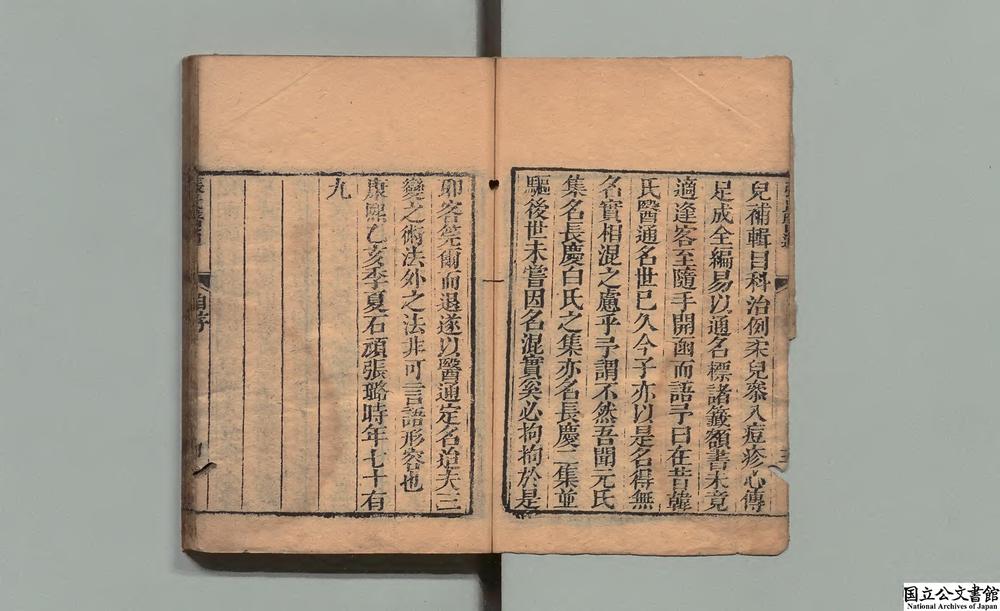 兒補輯目科治例柔兒參入痘疹心傳
足成全編易以通名標諸籤額書未竟
適逢客至隨手開函而語予曰在昔韓
氏醫通名世已久今子亦以是名得無
名實相混之慮乎予謂不然吾聞元氏
集名長慶白氏之集亦名長慶二集並
驅後世未嘗因名混實奚必拘拘於是
卯客筦爾而退遂以醫通定名迨夫三
變之術法外之法非可言語形容也
康熙乙亥季夏石頑張璐時年七十有
九
自序
国立公文書館
National Archives of Japan